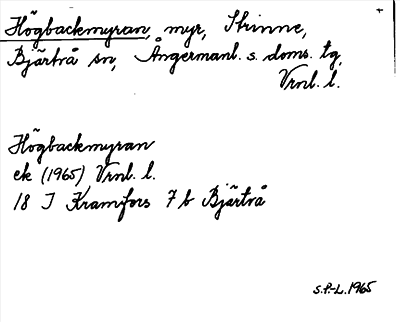 Högbackmyran, myr, Strinne,
Bjärtrå sn, Ångermanl. s. doms. tg,
Vrnl. l.
Högbackmyran
ek (1965) Vrnl. l.
18 I Kramfors 7 b Bjärtrå
S.P.-L. 1965